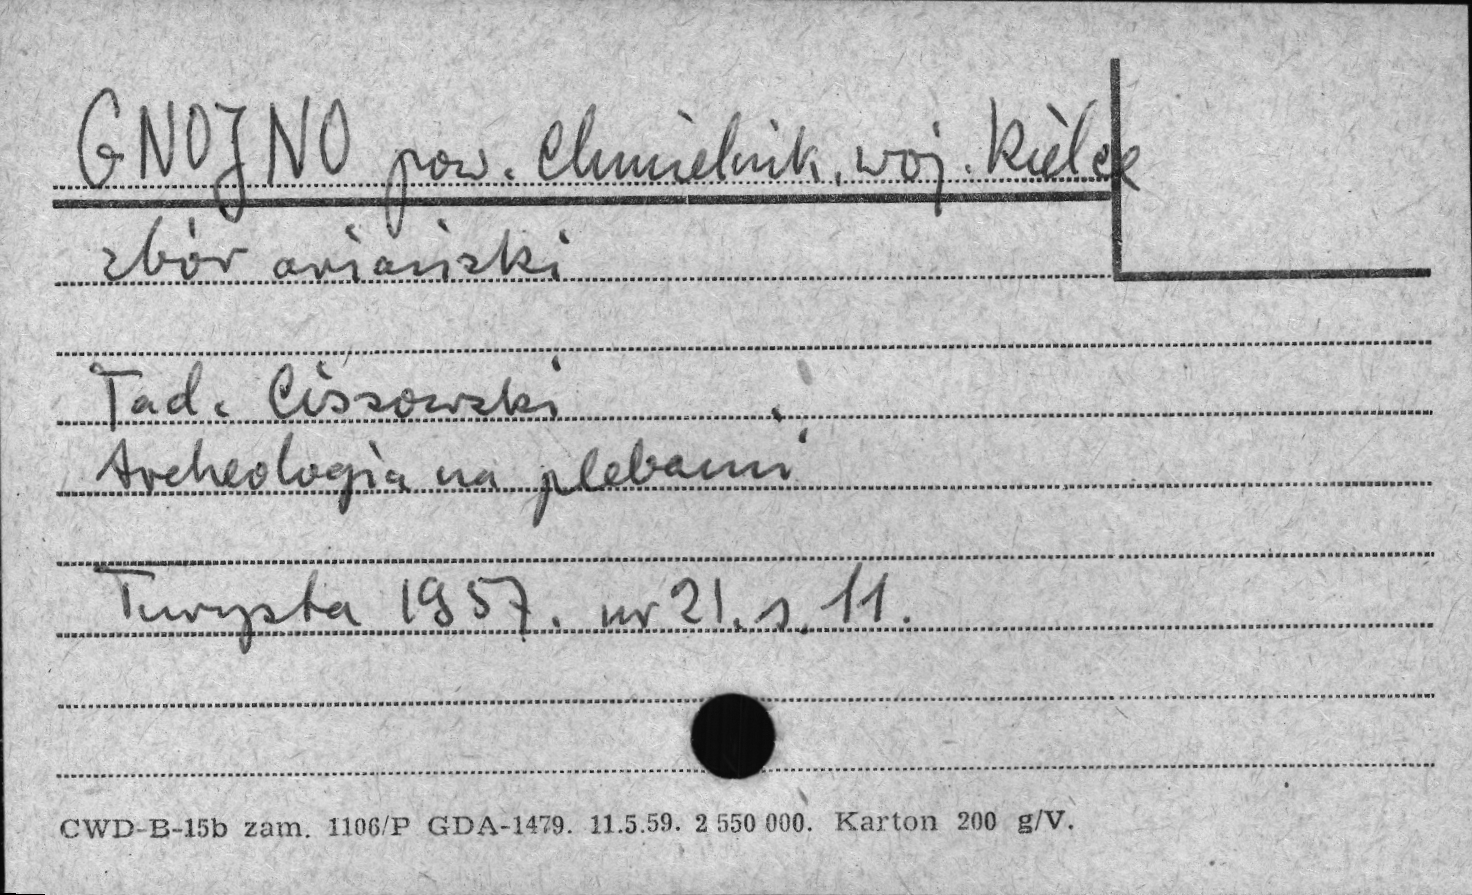 GNOJNO pow. Chmielnik, woj. Kielce
zbór ariański
Tad. Cissowski
Archeologia na plebanii
Turysta 1957. nr 21. s. 11.
CWD-B-15b zam. 1106/P GDA-1479. 11.5.59. 2 550 000. Karton 200 g/V.